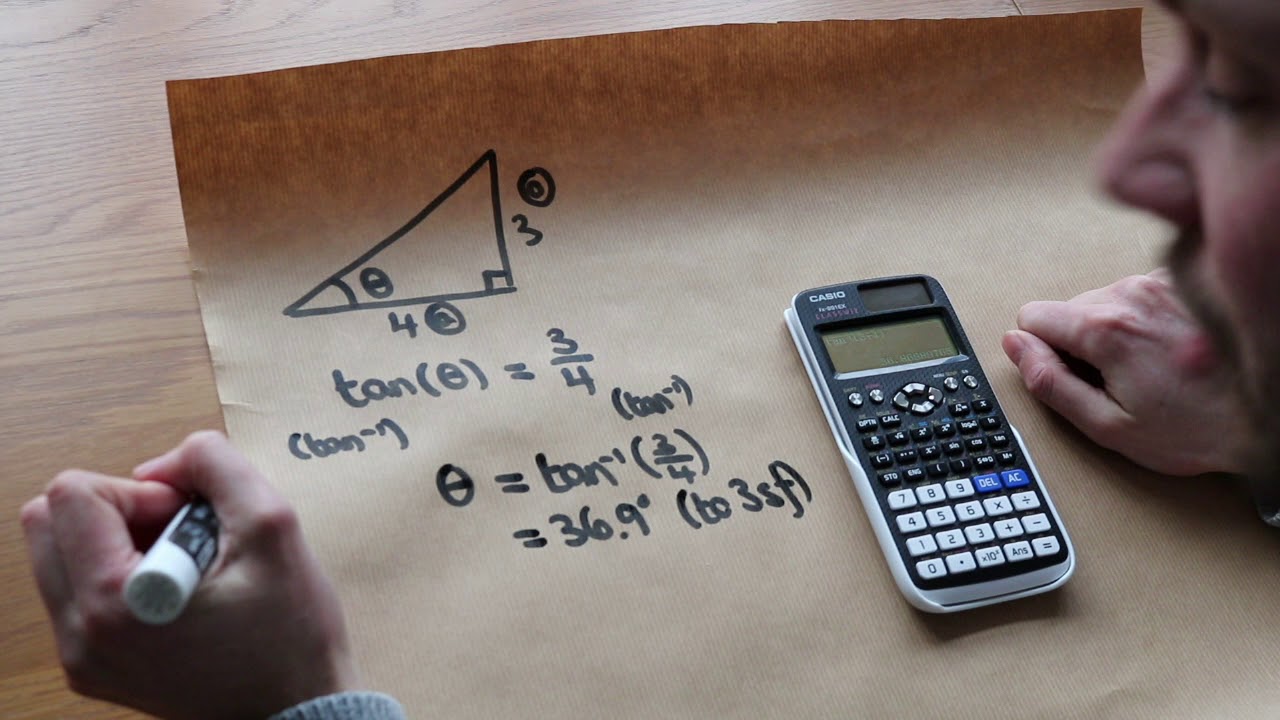 o
3
θ
4 a
tan(θ) = 3/4
(tan⁻¹) (tan⁻¹)
θ = tan⁻¹(3/4)
= 36.9° (to 3sf)
CASIO
fx-991EX
CLASSWIZ
OPTN CALC
sin cos tan
STO ENG ( ) S⇔D M+
7 8 9 DEL AC
4 5 6 × ÷
1 2 3 + −
0 • ×10ˣ Ans =